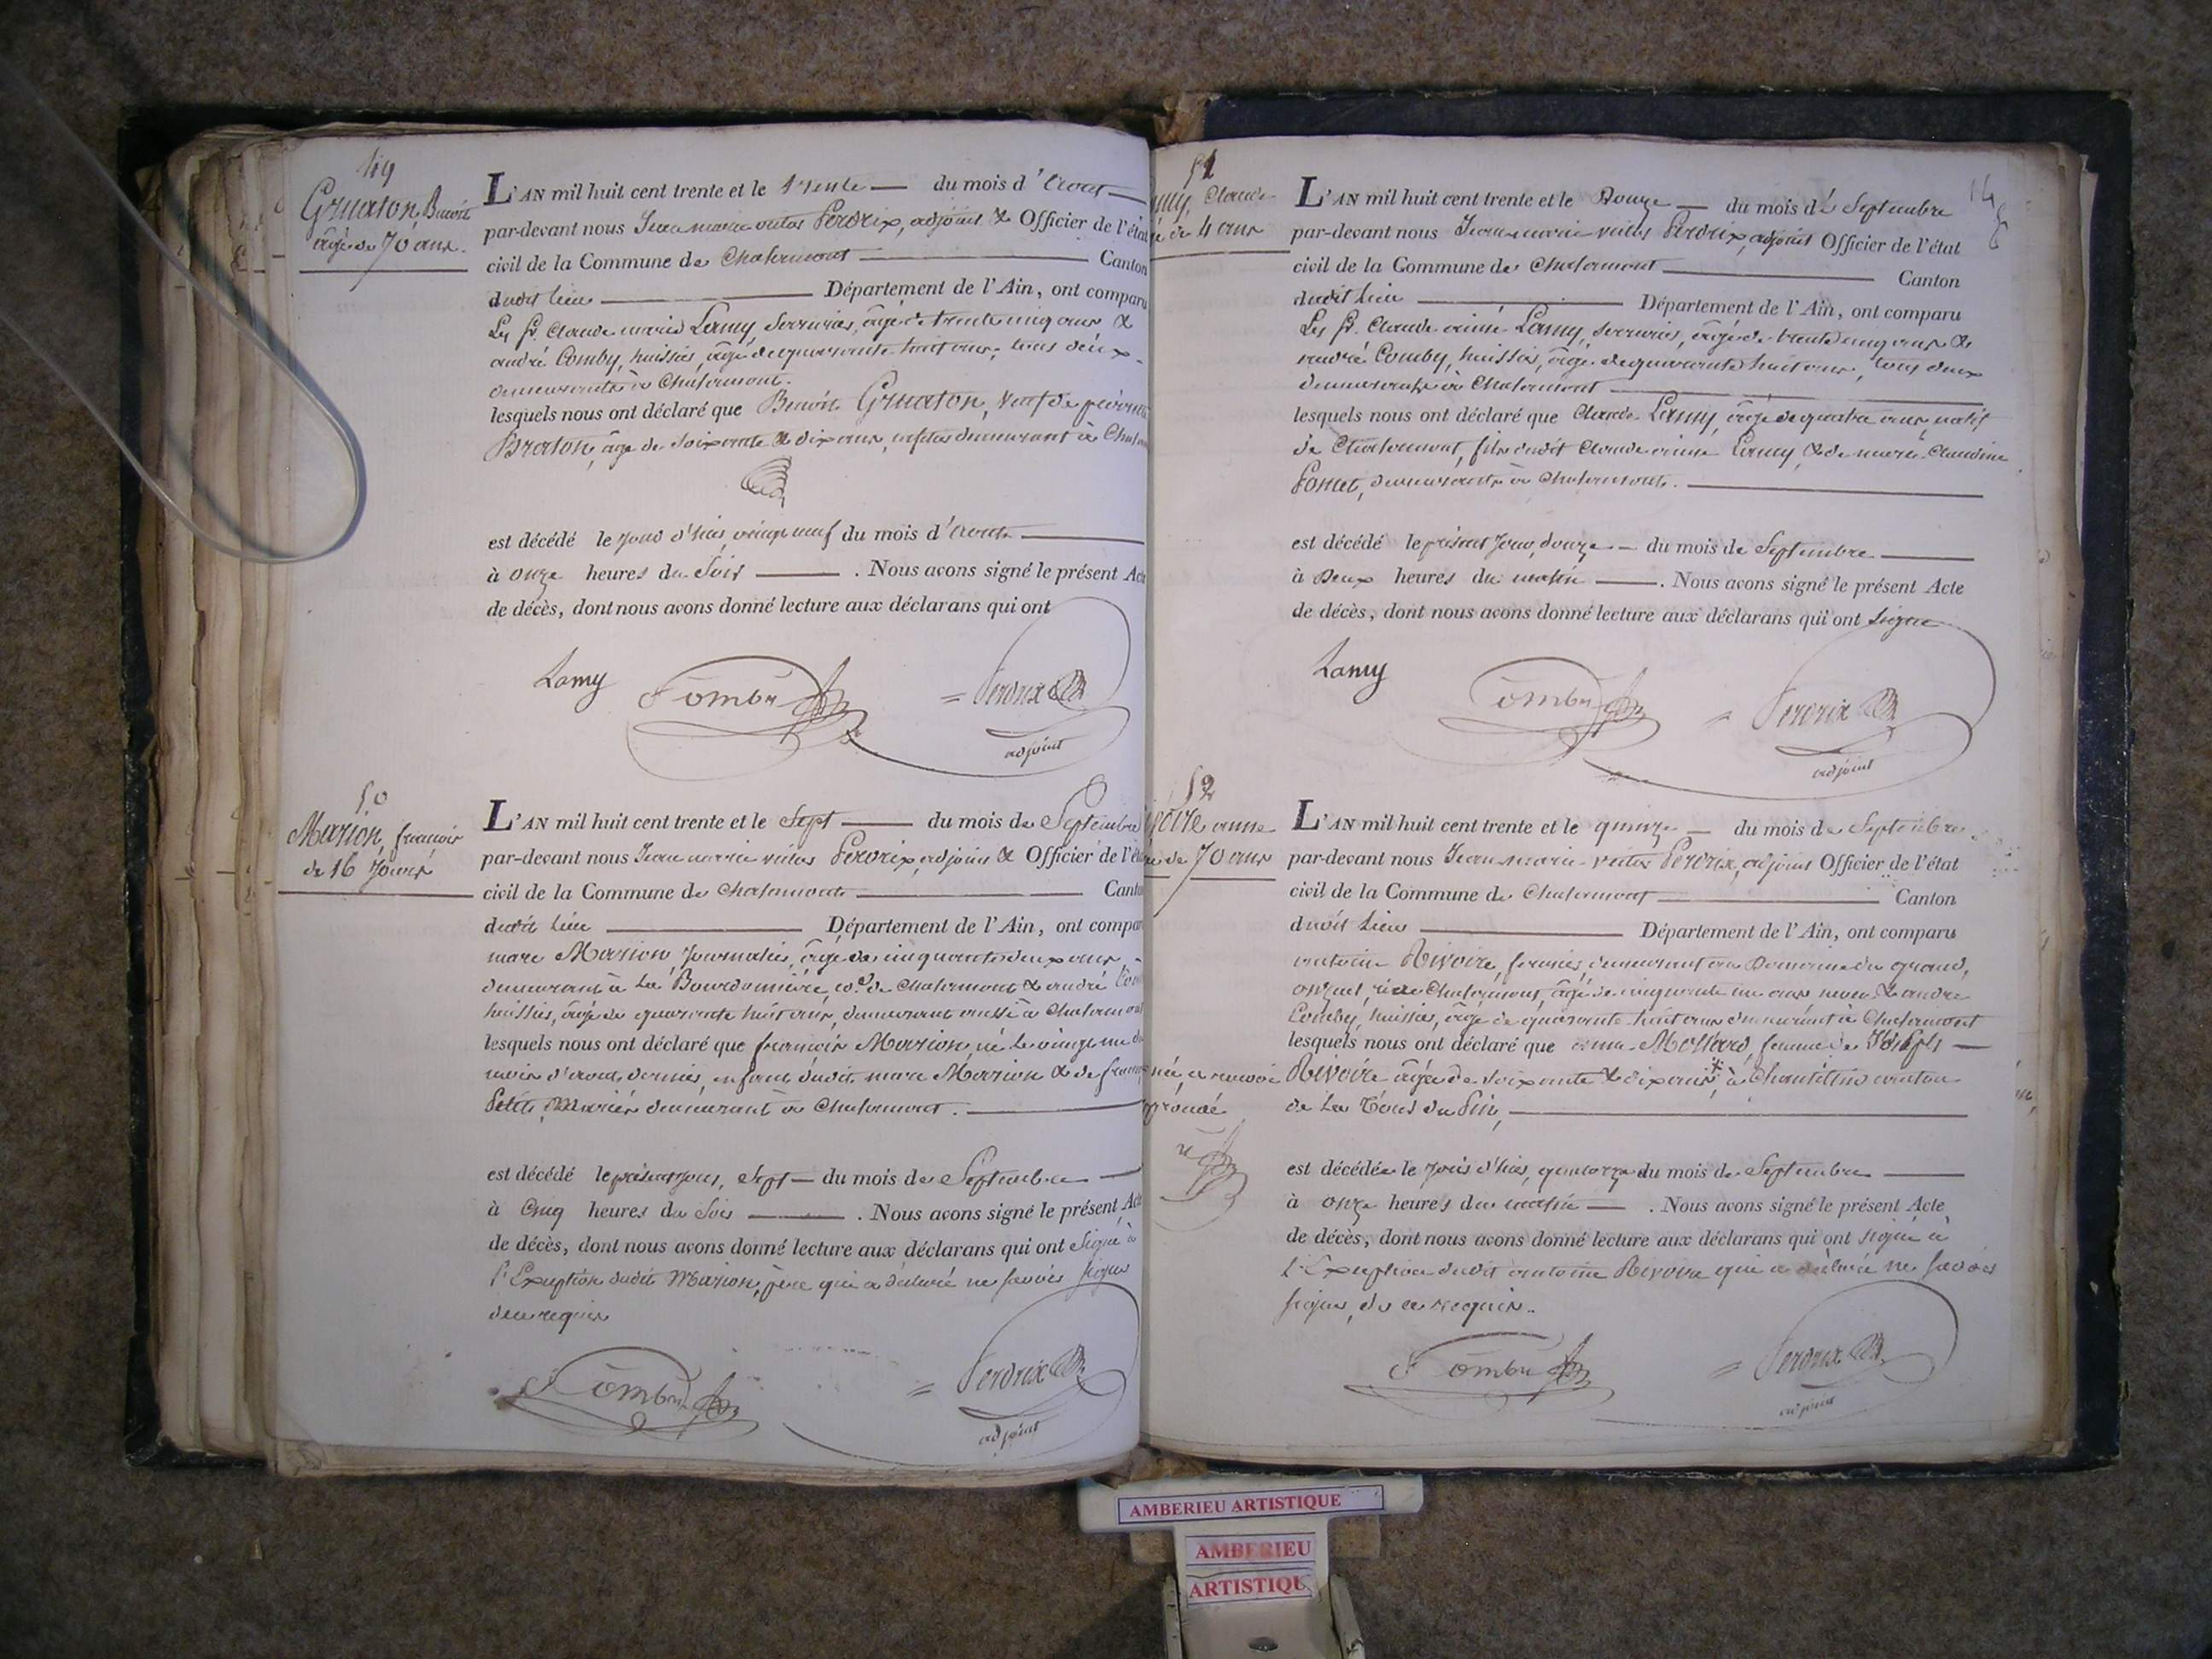 49
Gruaton, Benoit
âgé de 70 ans.
L'AN mil huit cent trente et le trente du mois d'Aout
par-devant nous Jean marie victor Perdrix, adjoint & Officier de l'état
civil de la Commune de Chalamont Canton
dudit lieu Département de l'Ain, ont comparu
Les Sr. Claude aimé Lamy, Serrurier, âgé de trente cinq ans, &
andré Comby, huissier, âgé de quarante huit ans, tous deux
demeurants à Chalamont.
lesquels nous ont déclaré que Benoit Gruaton, veuf de pierrette
Braton, âgé de soixante & dix ans, demeurant à
est décédé le jour d'hier, vingt neuf du mois d'Aout
à onze heures du Soir. Nous avons signé le présent Acte
de décès, dont nous avons donné lecture aux déclarans qui ont
Lamy Comby = Perdrix
adjoint
50
Marion, françois
de 16 Jours
L'AN mil huit cent trente et le Sept du mois de Septembre
par-devant nous Jean marie victor Perdrix, adjoint & Officier de l'état
civil de la Commune de Chalamont Canton
dudit lieu Département de l'Ain, ont comparu
marc Marion, Journalier, âgé de cinquante deux ans,
demeurant à La Bourdonnière, co.e de Chalamont & andré
huissier, âgé de quarante huit ans, demeurant aussi à Chalamont
lesquels nous ont déclaré que françois Marion né le vingt un du
mois d'aout dernier, enfant dudit marc Marion & de
Petit, Mariés demeurant à Chalamont.
est décédé le présent jour, Sept du mois de Septembre
à Cinq heures du Soir. Nous avons signé le présent Acte
de décès, dont nous avons donné lecture aux déclarans qui ont Signé à
l'Exception dudit Marion, père qui a déclaré ne savoir signer
de ce requis
Comby = Perdrix
adjoint
51
Lamy, Claude
de 4 ans
L'AN mil huit cent trente et le Douze du mois de Septembre
par-devant nous Jean marie victor Perdrix, adjoint Officier de l'état
civil de la Commune de Chalamont Canton
dudit lieu Département de l'Ain, ont comparu
Les Sr. Claude aimé Lamy, serrurier, âgé de trente cinq ans &
andré Comby, huissier, âgé de quarante huit ans, tous deux
demeurants à Chalamont
lesquels nous ont déclaré que Claude Lamy, âgé de quatre ans, natif
de Chalamont, fils dudit Claude aimé Lamy, & de marie Claudine
demeurants à Chalamont.
est décédé le présent jour, douze du mois de Septembre
à Deux heures du matin. Nous avons signé le présent Acte
de décès, dont nous avons donné lecture aux déclarans qui ont signé
Lamy Comby = Perdrix
adjoint
52
anne
de 70 ans
L'AN mil huit cent trente et le quinze du mois de Septembre
par-devant nous Jean marie victor Perdrix, adjoint Officier de l'état
civil de la Commune de Chalamont Canton
dudit lieu Département de l'Ain, ont comparu
antoine Rivoire, fermier, demeurant au Domaine du grand,
Chalamont, âgé de cinquante un ans neveu & andré
Comby, huissier, âgé de quarante huit ans demeurant à Chalamont
lesquels nous ont déclaré que anne femme de Joseph
Rivoire âgée de soixante & dix ans * à canton
de La Tour du Pin,
née, ce renvoi
approuvé
est décédée le jour d'hier, quatorze du mois de Septembre
à onze heures du matin. Nous avons signé le présent Acte
de décès, dont nous avons donné lecture aux déclarans qui ont signé à
l'Exception dudit antoine Rivoire qui a déclaré ne savoir
signer, de ce requis.
Comby = Perdrix
adjoint
AMBERIEU ARTISTIQUE
AMBERIEU
ARTISTIQU